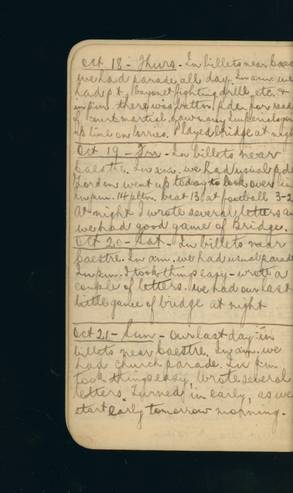 Oct 18 - Thurs - In billets near
we had parade all day. In a.m. we
had p.t., bayonet fighting drill, etc. &
in p.m. there was batt'n p'de for
of court martial.
up line on lorries. Played bridge at
Oct 19 - Fri - In billets near
Caestre. In a.m. we had usual p'de
went up today to look over
in p.m. 14 pltn. beat 13 at football 3-2
At night I wrote several letters
we had good game of Bridge.
Oct 20 - Sat - In billets near
Caestre. In a.m. we had usual parade
In p.m. I took things easy - wrote a
couple of letters. We had our last
little game of bridge at night
Oct 21 - Sun - Our last day in
billets near Caestre. In a.m. we
had church parade. In p.m.
took things easy. Wrote several
letters. Turned in early, as we
start early tomorrow morning.